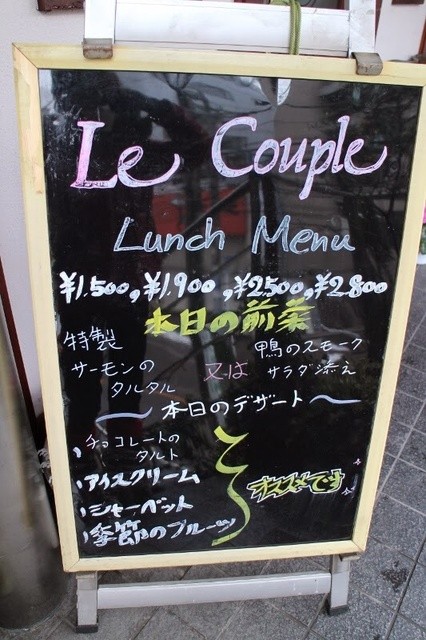 Le Couple
Lunch Menu
¥1.500, ¥1.900, ¥2.500, ¥2.800
本日の前菜
特製
サーモンの
タルタル
又は
鴨のスモーク
サラダ添え
～本日のデザート～
チョコレートの
タルト
アイスクリーム
シャーベット
季節のフルーツ
オススメです